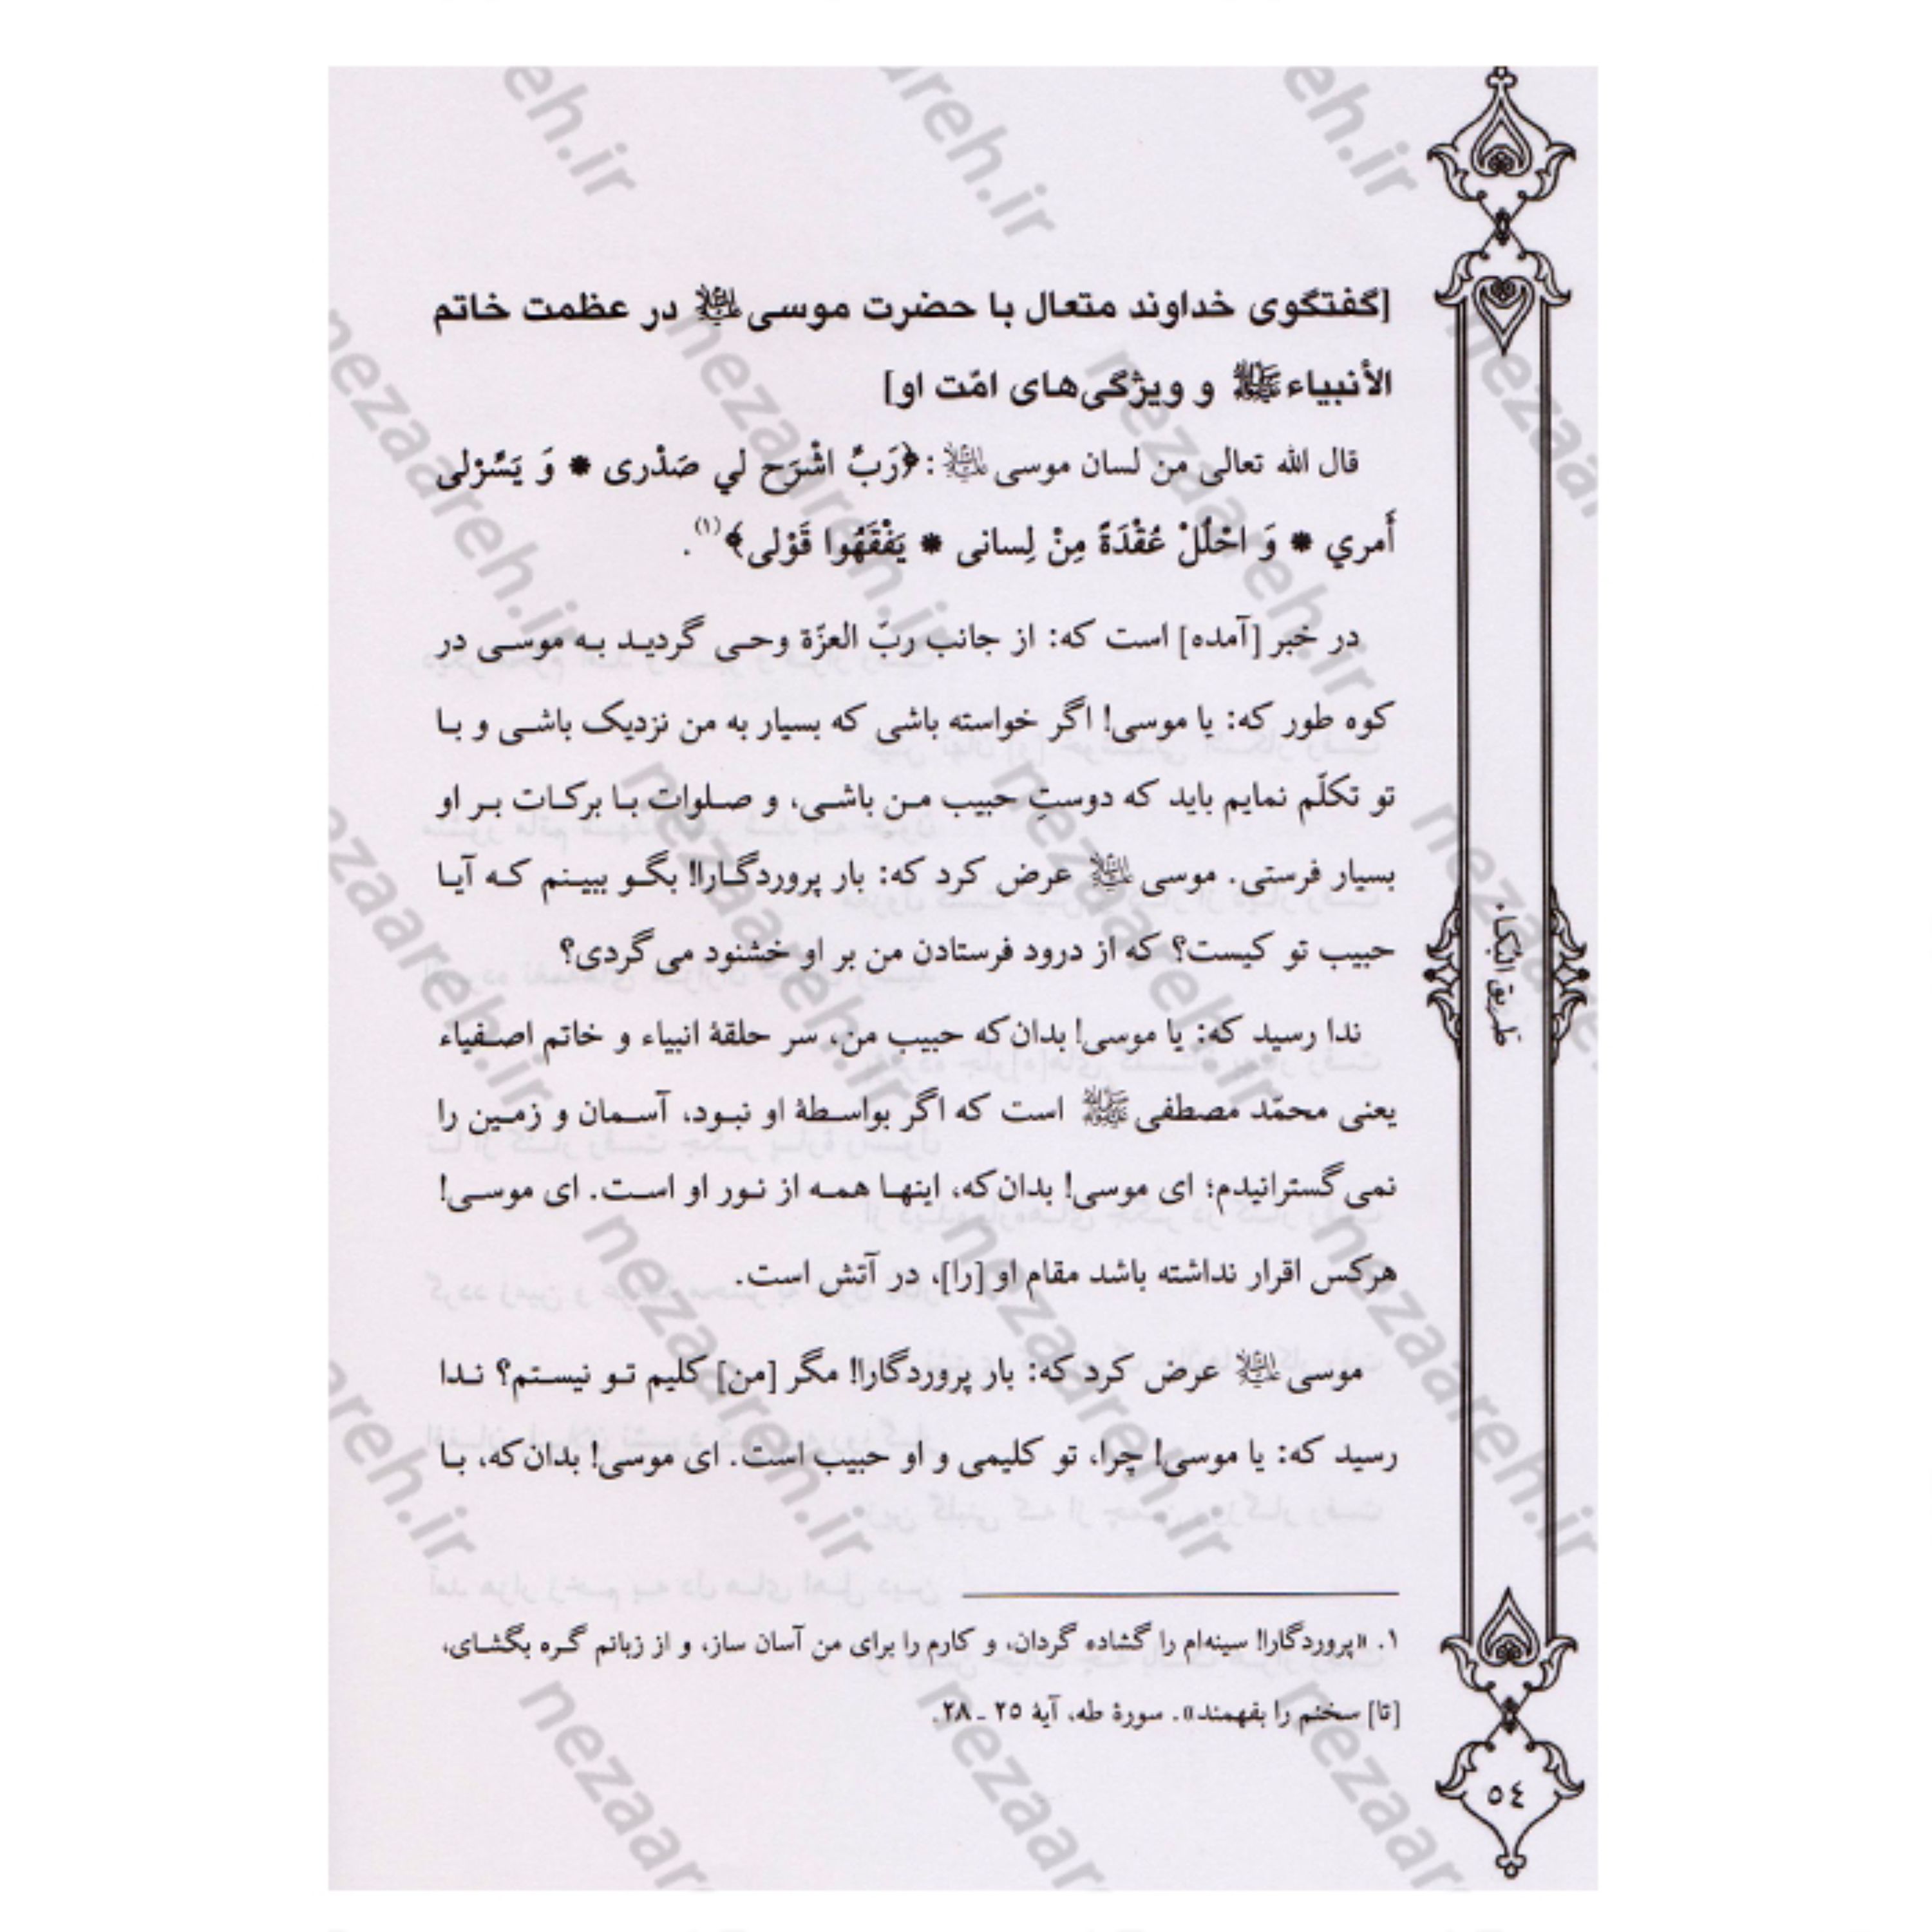 [گفتگوی خداوند متعال با حضرت موسی علیه‌السلام در عظمت خاتم
الأنبیاء ﷺ و ویژگی‌های امّت او]
قال الله تعالی من لسان موسی علیه‌السلام: ﴿رَبِّ اشْرَح لي صَدْری * وَ یَسِّرْلی
أَمري * وَ احْلُلْ عُقْدَةً مِنْ لِسانی * یَفْقَهُوا قَوْلی﴾(۱).
در خبر [آمده] است که: از جانب ربّ العزّة وحی گردید به موسی در
کوه طور که: یا موسی! اگر خواسته باشی که بسیار به من نزدیک باشی و با
تو تکلّم نمایم باید که دوستِ حبیب من باشی، و صلوات با برکات بر او
بسیار فرستی. موسی علیه‌السلام عرض کرد که: بار پروردگارا! بگو ببینم که آیا
حبیب تو کیست؟ که از درود فرستادن من بر او خشنود می‌گردی؟
ندا رسید که: یا موسی! بدان‌که حبیب من، سر حلقهٔ انبیاء و خاتم اصفیاء
یعنی محمّد مصطفی ﷺ است که اگر بواسطهٔ او نبود، آسمان و زمین را
نمی‌گسترانیدم؛ ای موسی! بدان‌که، اینها همه از نور او است. ای موسی!
هرکس اقرار نداشته باشد مقام او [را]، در آتش است.
موسی علیه‌السلام عرض کرد که: بار پروردگارا! مگر [من] کلیم تو نیستم؟ ندا
رسید که: یا موسی! چرا، تو کلیمی و او حبیب است. ای موسی! بدان‌که، با
۱. «پروردگارا! سینه‌ام را گشاده گردان، و کارم را برای من آسان ساز، و از زبانم گره بگشای،
[تا] سخنم را بفهمند». سورهٔ طه، آیهٔ ۲۵ ـ ۲۸.
طریق البُکاء
٥٤
nezaareh.ir